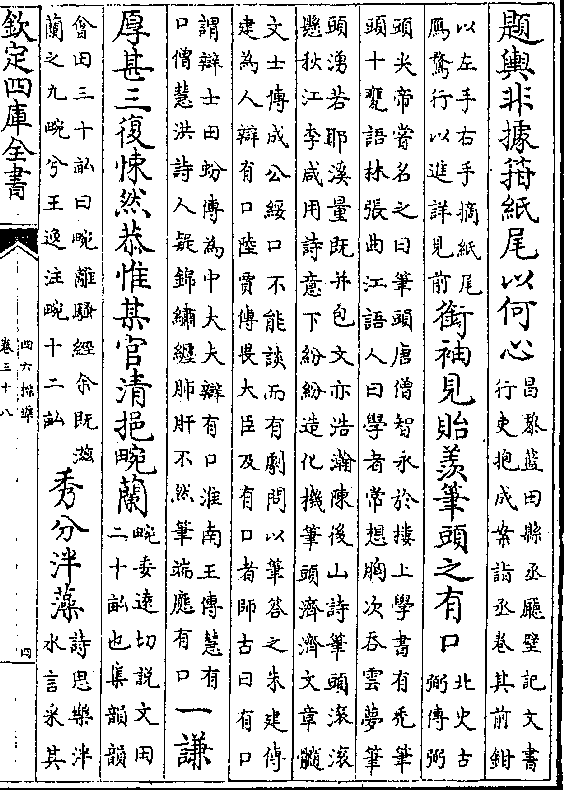 題輿非據箝紙尾以何心
昌黎藍田縣丞廳壁記文書
行吏抱成案詣丞卷其前鉗
以左手右手摘紙尾
鴈鶩行以進詳見前
銜袖見貽羨筆頭之有口
北史古
弼傳弼
頭尖帝嘗名之曰筆頭唐僧智永於樓上學書有禿筆
頭十甕語林張曲江語人曰學者常想胸次吞雲夢筆
頭湧若耶溪量既并包文亦浩瀚陳後山詩筆頭滾滾
懸秋江李咸用詩意下紛紛造化機筆頭濟濟文章髓
文士傳成公綏口不能談而有劇問以筆答之朱建傳
建為人辯有口陸賈傳畏大臣及有口者師古曰有口
謂辯士田蚡傳為中大夫辯有口淮南王傳慧有
口僧慧洪詩人疑錦繡纏肺肝不然筆端應有口
一謙
厚甚三復悚然恭惟某官清挹畹蘭
畹委遠切說文田
二十畝也集韻韻
會田三十畝曰畹離騷經余既滋
蘭之九畹兮王逸注畹十二畝
秀分泮藻
詩思樂泮
水言采其
欽定四庫全書
四六標準
卷三十八
四